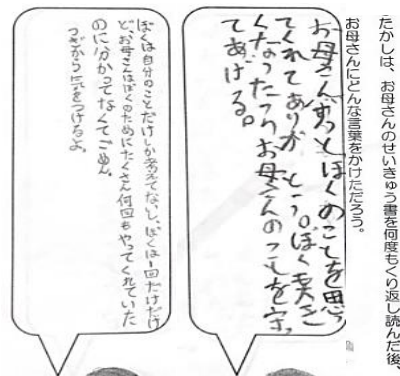 たかしは、お母さんのせいきゅう書を何度もくり返し読んだ後、
お母さんにどんな言葉をかけただろう。
お母さんずっとぼくのことを思っ
てくれてありがとう。ぼく大き
くなったらお母さんのことを守っ
てあげる。
ぼくは自分のことだけしか考えてないし、ぼくは一回だけだけ
ど、お母さんはぼくのためにたくさん何回もやってくれていた
のに分かってなくてごめん。
つぎから気をつけるよ。